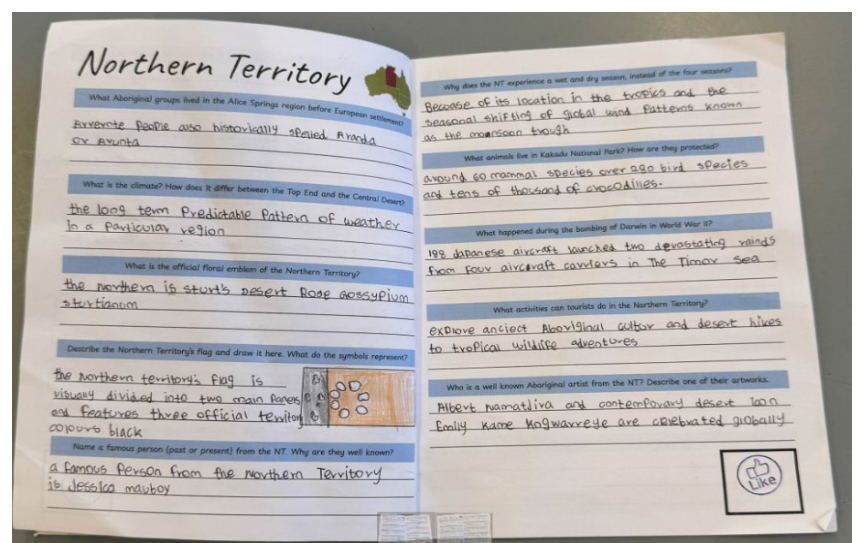 Northern Territory
What Aboriginal groups lived in the Alice Springs region before European settlement?
Arrernte People also historically spelled Aranda
or Arunta
What is the climate? How does it differ between the Top End and the Central Desert?
the long term Predictable Pattern of weather
in a Particular region
What is the official floral emblem of the Northern Territory?
the northern is sturt's Desert Rose Gossypium
sturtianum
Describe the Northern Territory's flag and draw it here. What do the symbols represent?
the Northern territory's flag is
visually divided into two main Panels
and features three official territory
colours black
Name a famous person (past or present) from the NT. Why are they well known?
a famous Person from the northern Territory
is Jessica mauboy
Why does the NT experience a wet and dry season, instead of the four seasons?
Because of its location in the tropics and the
seasonal shifting of global wind Patterns known
as the monsoon trough
What animals live in Kakadu National Park? How are they protected?
around 60 mammal species over 280 bird species
and tens of thousand of crocodiles.
What happened during the bombing of Darwin in World War II?
188 Japanese aircraft launched two devastating rainds
from four aircraft carriers in The Timor Sea
What activities can tourists do in the Northern Territory?
explore anciect Aboriginal cultur and desert hikes
to tropical wildlife adventures
Who is a well known Aboriginal artist from the NT? Describe one of their artworks.
Albert namatjira and contemporary desert Icon
Emily Kame Kngwarreye are celebrated globally
Like